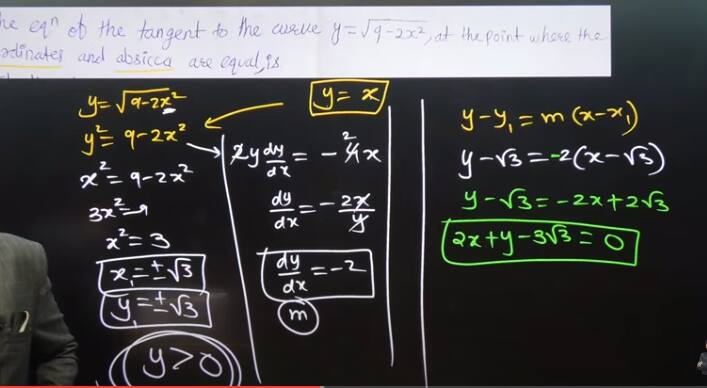 he eqⁿ of the tangent to the curve y = √9-2x², at the point where the
ordinates and absicca are equal, is
y = √9-2x²
y = x
y² = 9-2x²
x² = 9-2x²
3x² = 9
x² = 3
x₁ = ±√3
y₁ = ±√3
y > 0
2y dy/dx = - 4x
2
dy/dx = - 2x/y
dy/dx = -2
m
y - y₁ = m (x - x₁)
y - √3 = -2(x - √3)
y - √3 = -2x + 2√3
2x + y - 3√3 = 0